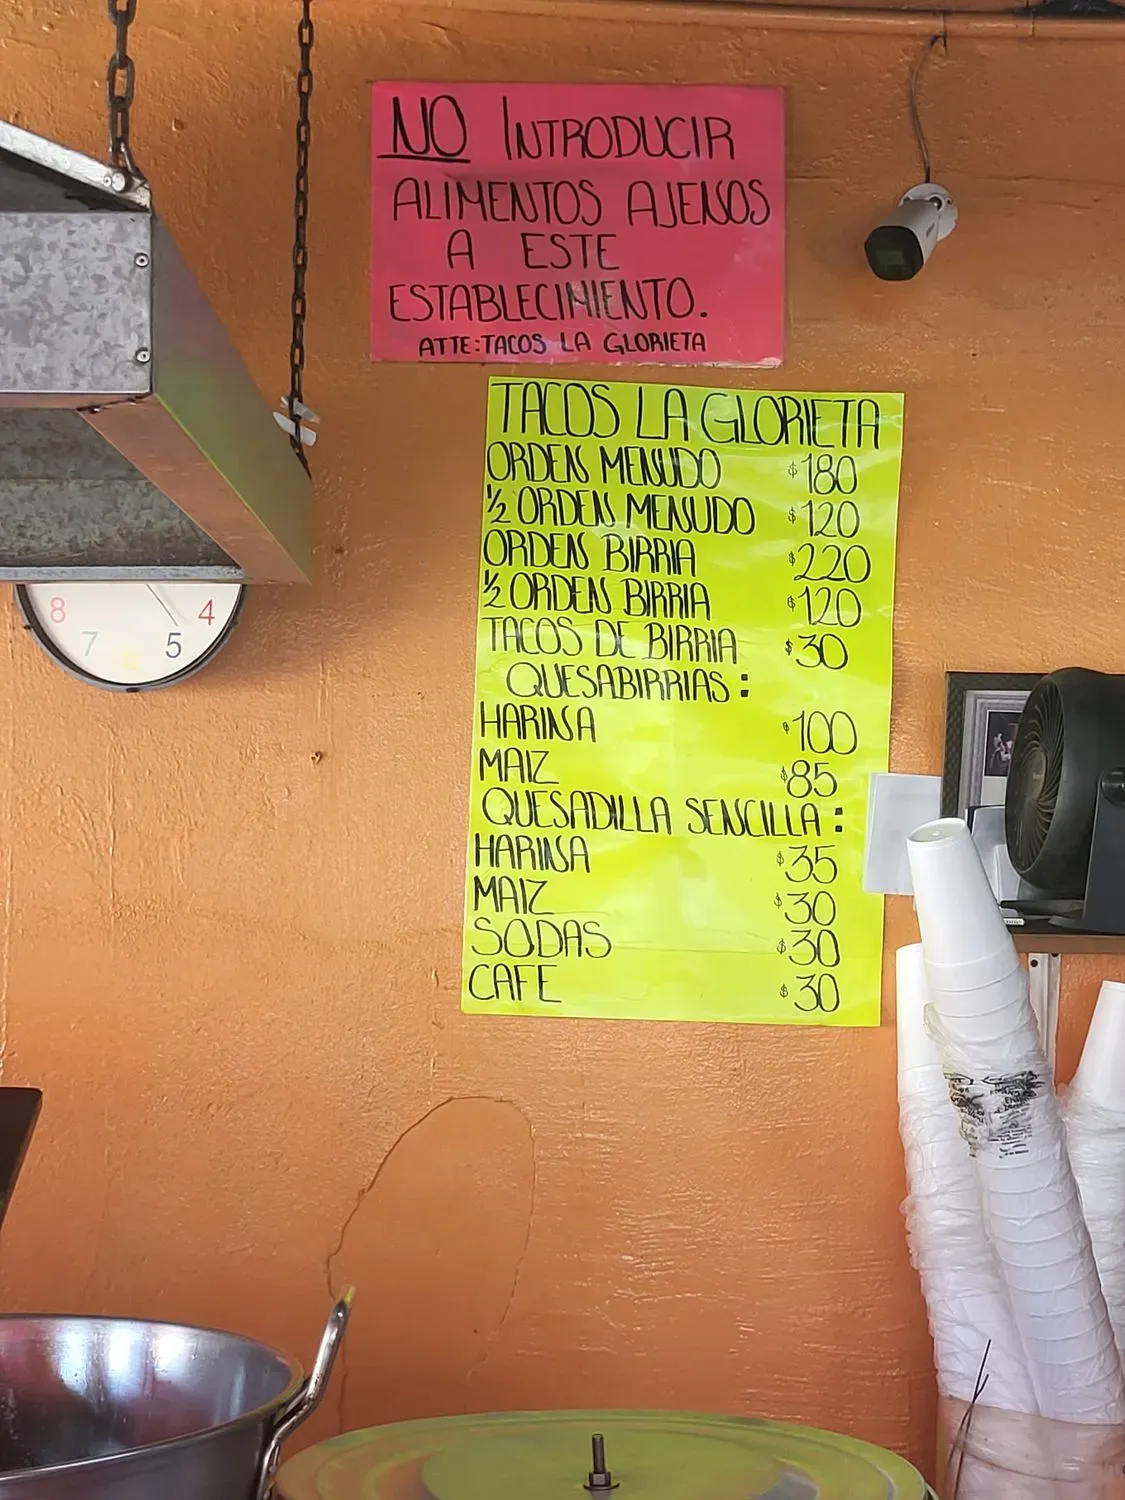 NO INTRODUCIR
ALIMENTOS AJENOS
A ESTE
ESTABLECIMIENTO.
ATTE: TACOS LA GLORIETA
TACOS LA GLORIETA
ORDEN MENUDO $180
½ ORDEN MENUDO $120
ORDEN BIRRIA $220
½ ORDEN BIRRIA $120
TACOS DE BIRRIA $30
QUESABIRRIAS:
HARINA $100
MAIZ $85
QUESADILLA SENCILLA:
HARINA $35
MAIZ $30
SODAS $30
CAFE $30
8 4
7 5
6